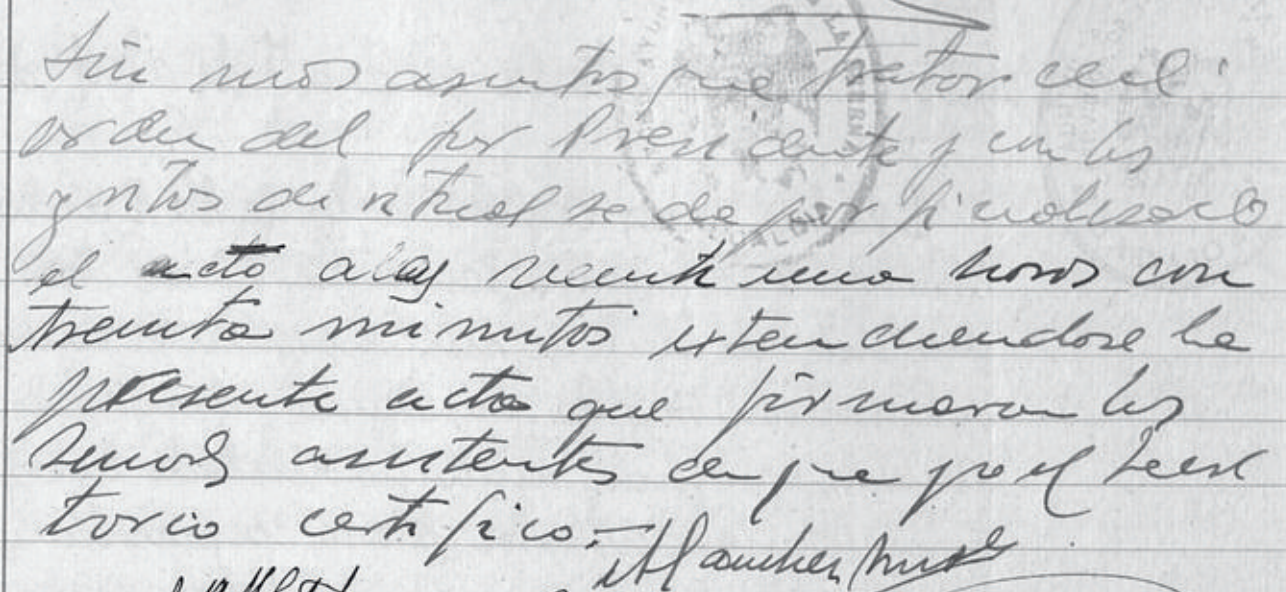 Sin mas asuntos que tratar en el
orden del por Presidente y con los
gritos de ritual se da por finalizado
el acto a las veinte una horas con
treinta minutos extendiendose la
presente acta que firmaran los
Señores asistentes de que yo el Secre
tario certifico.-